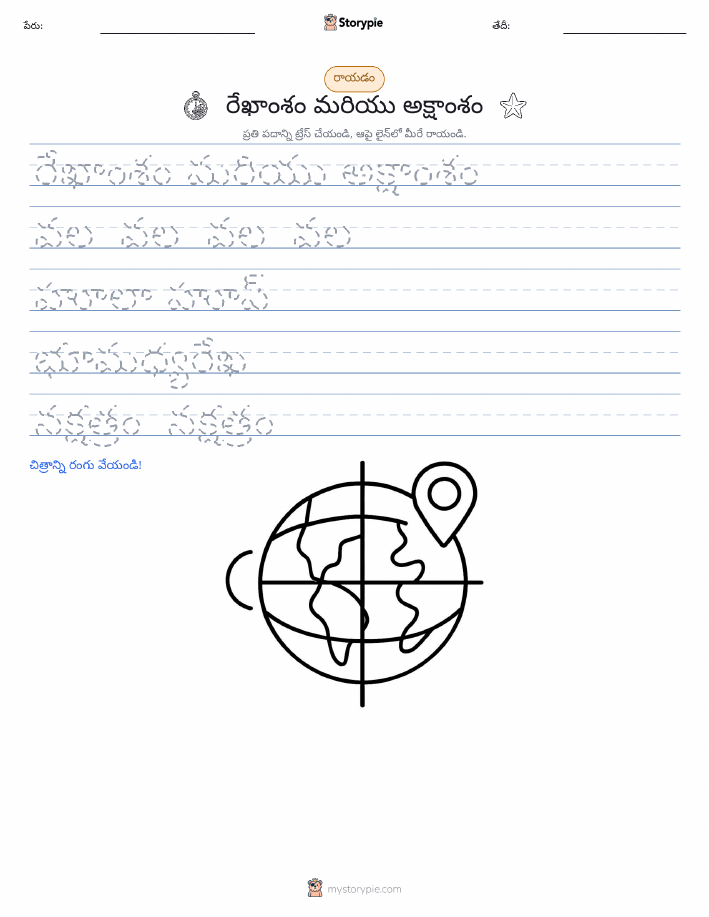 పేరు:
Storypie
తేదీ:
రాయడం
రేఖాంశం మరియు అక్షాంశం
ప్రతి పదాన్ని ట్రేస్ చేయండి, ఆపై లైన్‌లో మీరే రాయండి.
రేఖాంశం మరియు అక్షాంశం
వల వల వల వల
భూమధ్యరేఖ
నక్షత్రం నక్షత్రం
చిత్రాన్ని రంగు వేయండి!
mystorypie.com